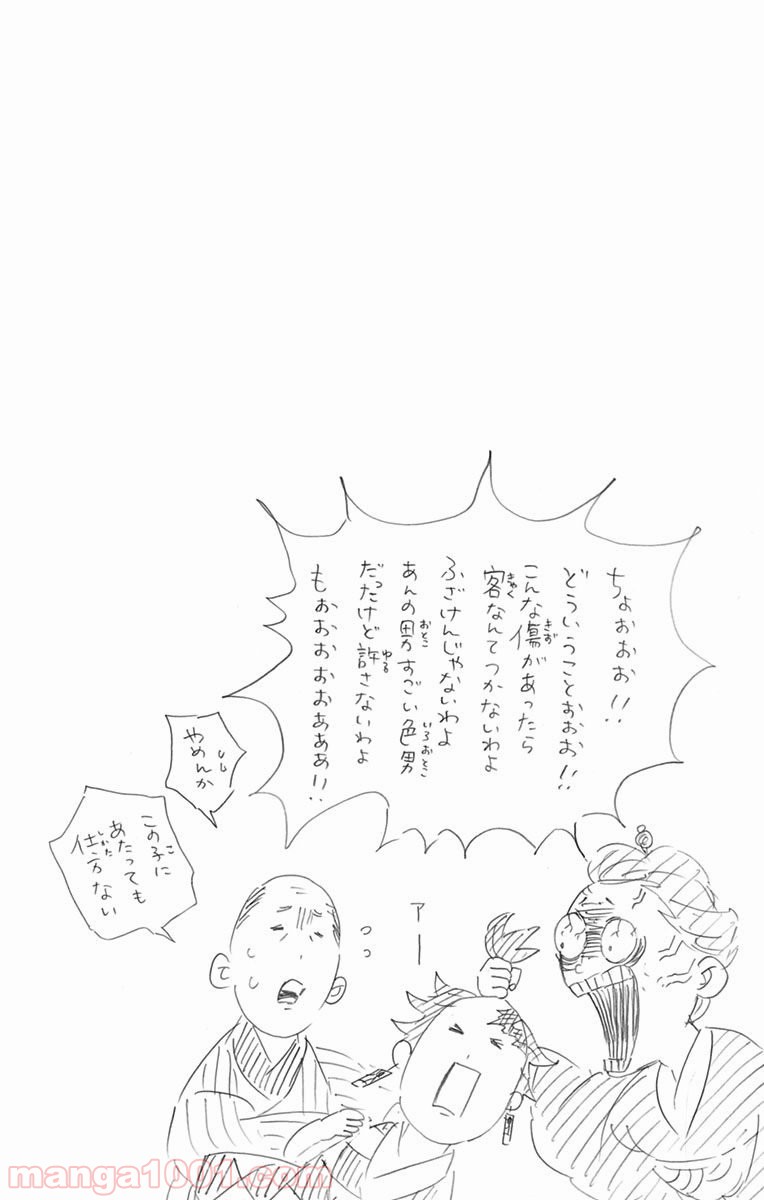 ちょおおお!!
どういうことおおお!!
こんな傷があったら
客なんてつかないわよ
ふざけんじゃないわよ
あんの男すごい色男
だったけど許さないわよ
もおおおおおあああ!!
やめんか
この子に
あたっても
仕方ない
アー
manga1001.com